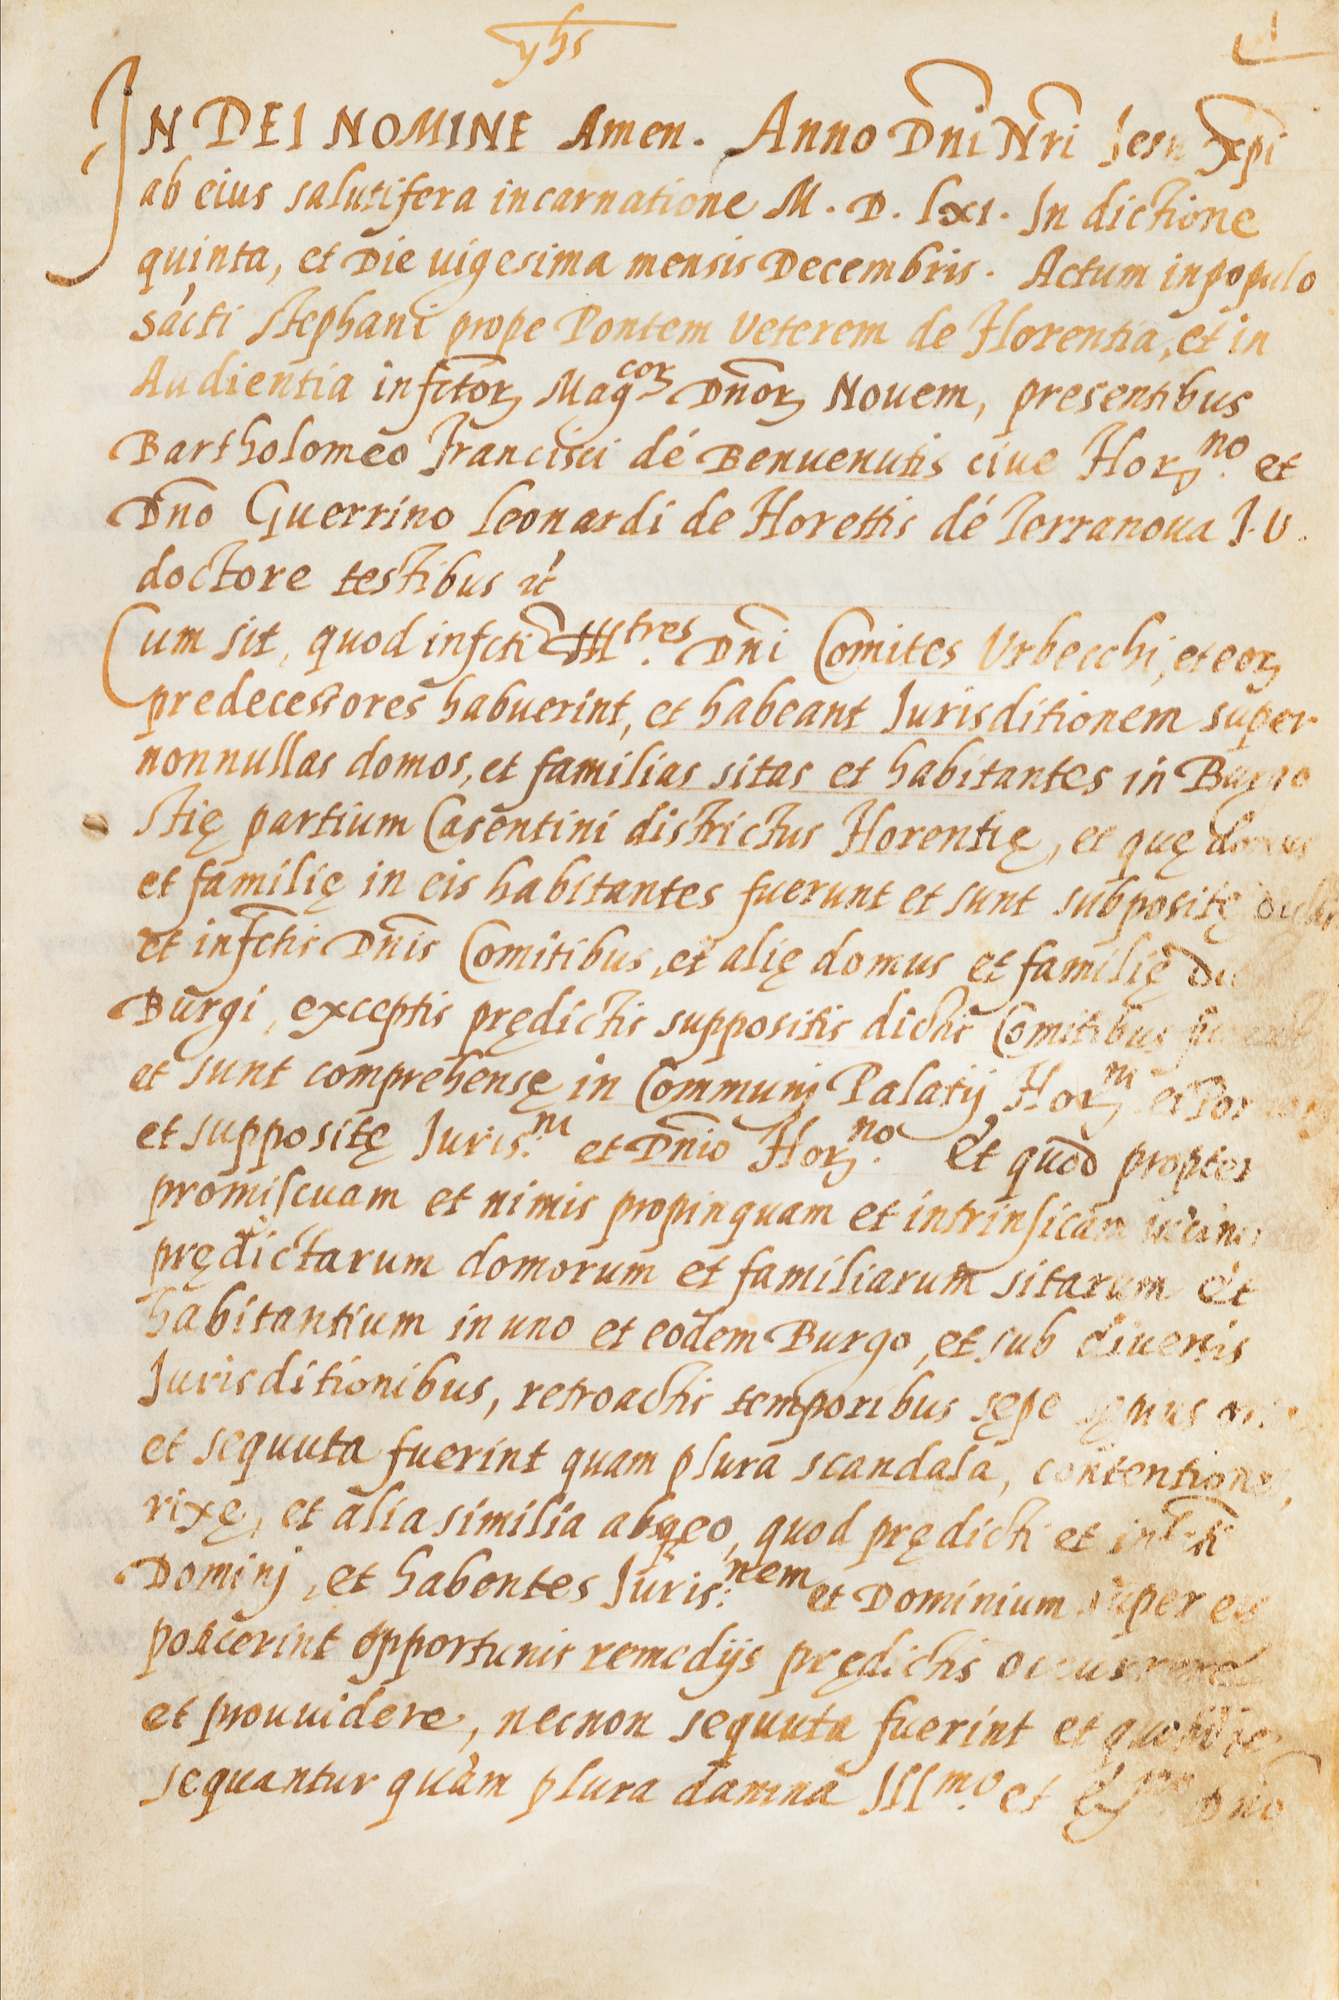 yhs
1
IN DEI NOMINE Amen. Anno Dni Nri Iesu Xpi
ab eius salutifera incarnatione M. D. lxi. Indictione
quinta, et Die uigesima mensis Decembris. Actum in populo
sacti stephani prope Pontem Veterem de Florentia, et in
Audientia infctorꝝ Magcorꝝ Dnorꝝ Nouem, presentibus
Bartholomeo Francisci dé Benuenutis ciue Florno. et
Dno Guerrino Leonardi de Florettis dé Terranoua I. V.
doctore testibus
Cum sit, quod infcti Illtres. Dni Comites Vrbecchi, et eorꝝ
predecessores habuerint, et habeant Iurisditionem super
nonnullas domos, et familias sitas et habitantes in Burgo
stię partium Casentini districtus Florentię, et quę domus
et familię in eis habitantes fuerunt et sunt subpositę
et infctis Dnis Comitibus, et alię domus et familię
Burgi, exceptis prędictis suppositis dictis Comitibus
et sunt comprehensę in Communj Palatij Florni et
et suppositę Iuris.ni et Dnio Florno. et quod propter
promiscuam et nimis propinquam et intrinsicam
prędictarum domorum et familiarum sitarum et
habitantium in uno et eodem Burgo, et sub diuersis
Iurisditionibus, retroactis temporibus sępe sępius
et sequuta fuerint quam plura scandala, contentiones,
rixę, et alia similia absqꝫ eo, quod prędicti et infcti
Dominj, et habentes Iuris.nem et Dominium super eis
potuerint opportunis remedijs prędictis occurrere
et prouuidere, necnon sequuta fuerint et quotidie
sequantur quàm plura damna Illmo. et Dno